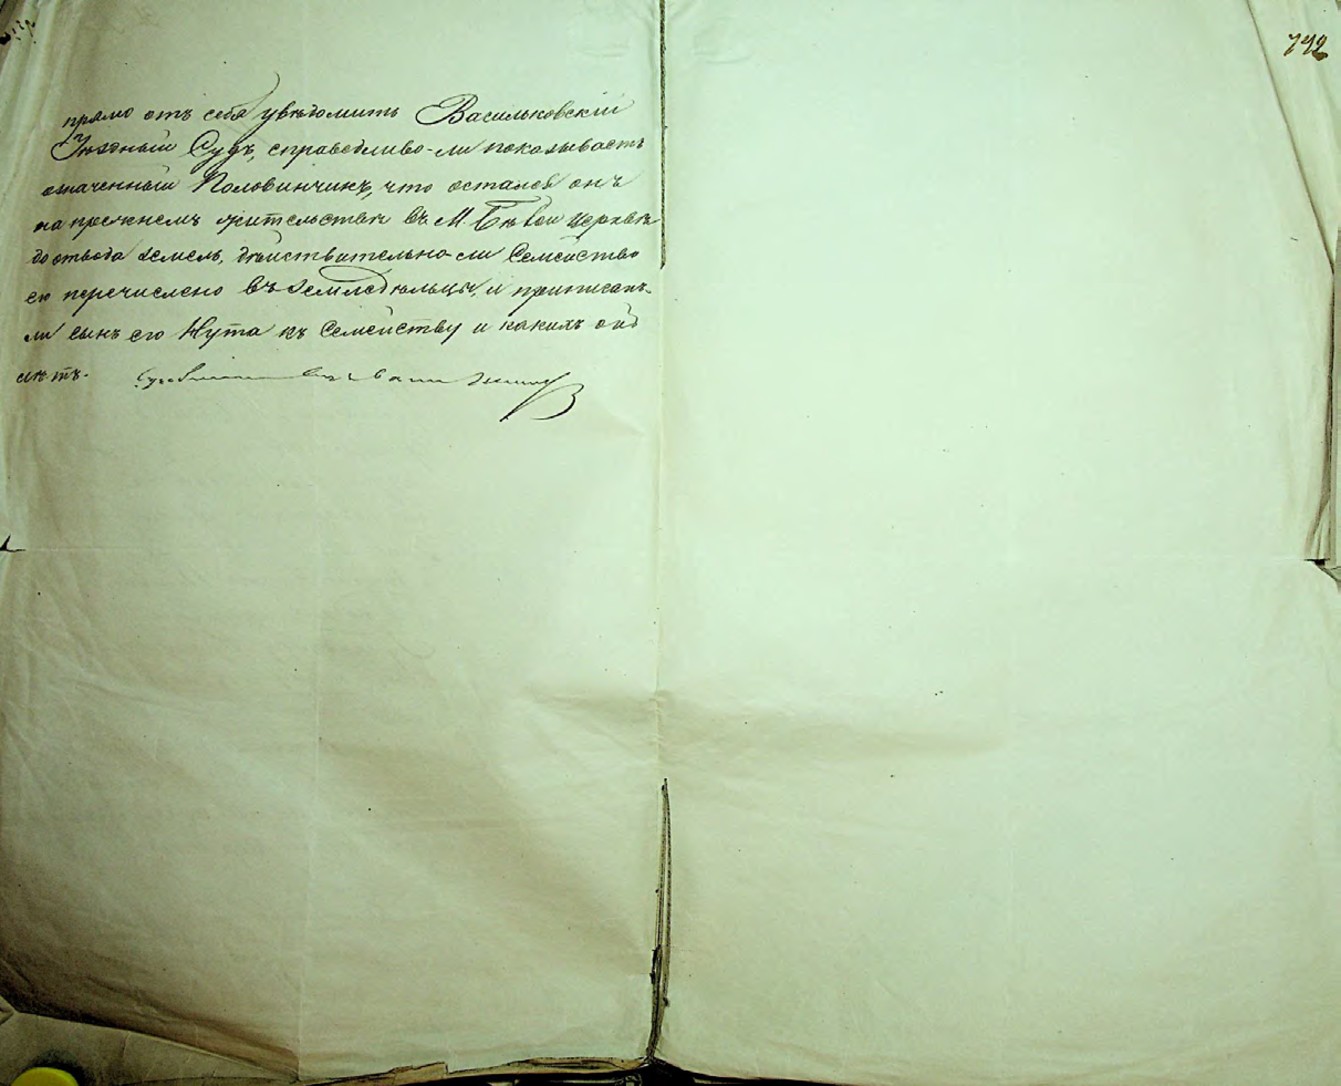 742
прямо отъ себя увѣдомить Васильковскій
Уѣздный Судъ, справедливо-ли показываетъ
означенный Половинчикъ, что остался онъ
на прежнемъ жительствѣ въ М. Бѣлой Церквѣ
до отвода земель, дѣйствительно-ли Семейство
его перечислено въ Земледѣльцы, и приписанъ-
ли сынъ его Нута къ Семейству и какихъ онъ
лѣтъ.